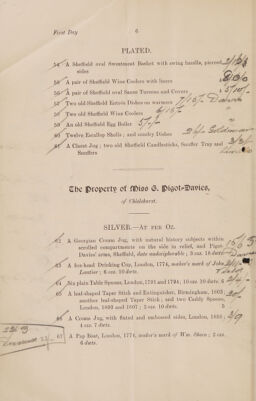 First Day 6
PLATED.
54 A Sheffield oval Sweetmeat Basket with swing handle, pierced
sides
55 A pair of Sheffield Wine Coolers with liners
56 A pair of Sheffield oval Sauce Tureens and Covers
57 Two old Sheffield Entrée Dishes on warmers
58 Two old Sheffield Wine Coolers
59 An old Sheffield Egg Boiler
60 Twelve Escallop Shells; and sundry Dishes
61 A Chest Jug; two old Sheffield Candlesticks, Snuffer Tray and
Snuffers
The Property of Miss G. Pigot-Davies,
of Chislehurst.
SILVER.—AT PER OZ.
62 A Georgian Cream Jug, with natural history subjects within
scrolled compartments on the side in relief, and Pigot
Davies' arms, Sheffield, date undecipherable; 3 ozs. 18 dwts.
63 A fox-head Drinking Cup, London, 1774, maker's mark of John
Lautier; 4 ozs. 10 dwts.
64 Six plain Table Spoons, London, 1791 and 1794; 10 ozs. 6 dwts.
65 A leaf-shaped Taper Stick and Extinguisher, Birmingham, 1803;
another leaf-shaped Taper Stick; and two Caddy Spoons,
London, 1802 and 1807; 5 ozs. 12 dwts.
66 A Cream Jug, with fluted and embossed sides, London, 1810;
4 ozs. 7 dwts.
67 A Pap Boat, London, 1774, maker's mark of Wm. Skeen; 2 ozs.
6 dwts.